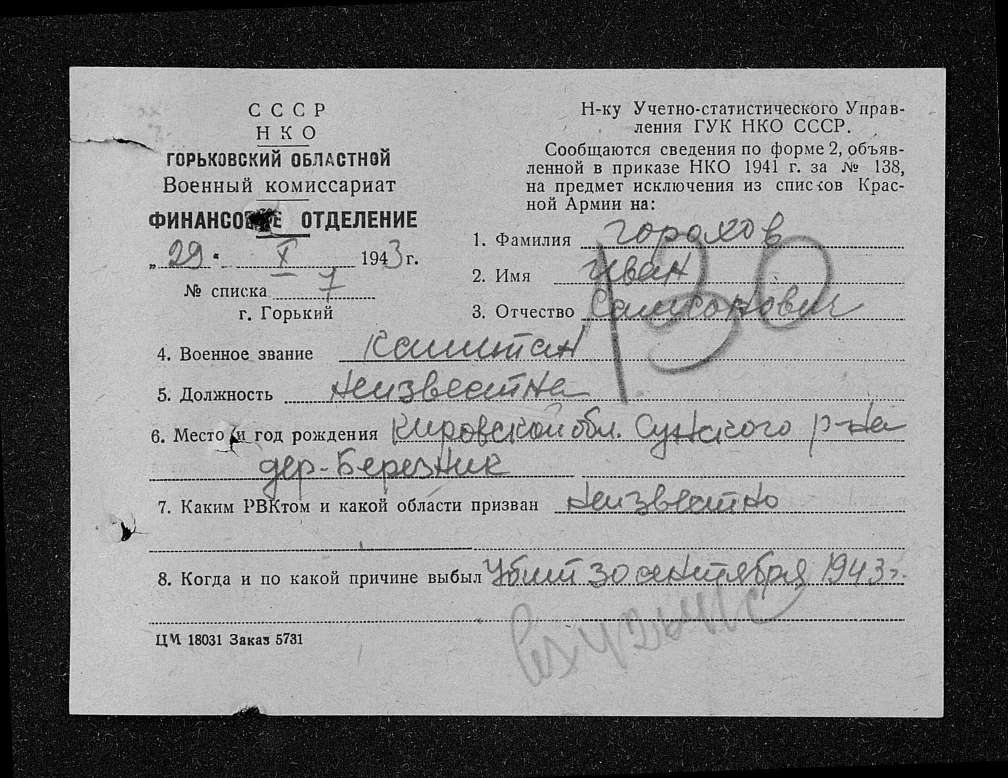 СССР
НКО
ГОРЬКОВСКИЙ ОБЛАСТНОЙ
Военный комиссариат
ФИНАНСОВОЕ ОТДЕЛЕНИЕ
„29" X 1943 г.
№ списка 7
г. Горький
Н-ку Учетно-статистического Управ-
ления ГУК НКО СССР.
Сообщаются сведения по форме 2, объяв-
ленной в приказе НКО 1941 г. за № 138,
на предмет исключения из списков Крас-
ной Армии на:
1. Фамилия Горохов
2. Имя Иван
3. Отчество Самсонович
130
4. Военное звание Капитан
5. Должность неизвестна
6. Место и год рождения Кировской обл. Сунского р-на
дер-Березник
7. Каким РВКтом и какой области призван неизвестно
8. Когда и по какой причине выбыл Убит 30 сентября 1943 г.
ЦМ 18031 Заказ 5731